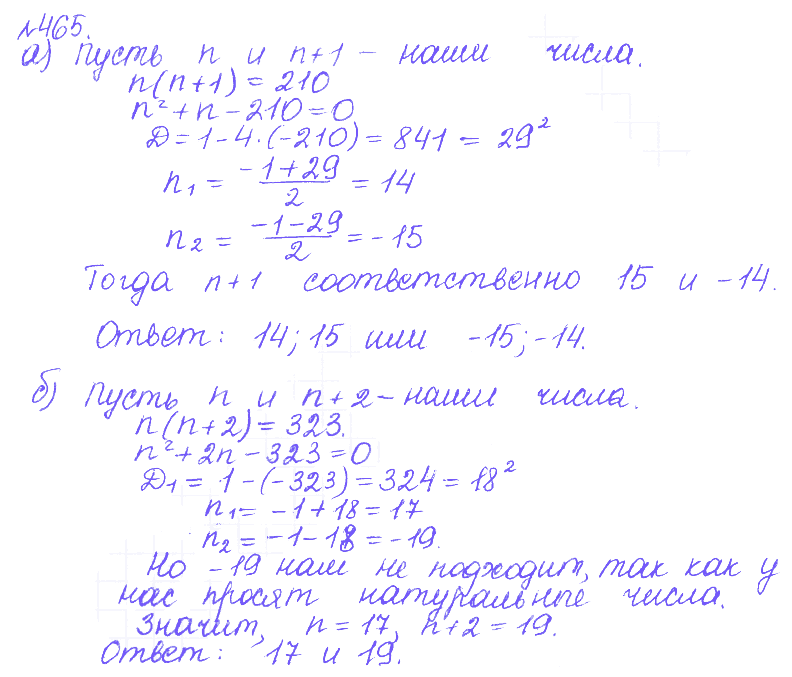 №465.
а) Пусть n и n+1 – наши числа.
n(n+1) = 210
n² + n – 210 = 0
D = 1 – 4·(–210) = 841 = 29²
n₁ = (–1+29)/2 = 14
n₂ = (–1–29)/2 = –15
Тогда n+1 соответственно 15 и –14.
Ответ: 14; 15 или –15; –14.
б) Пусть n и n+2 – наши числа.
n(n+2) = 323.
n² + 2n – 323 = 0
D₁ = 1 – (–323) = 324 = 18²
n₁ = –1 + 18 = 17
n₂ = –1 – 18 = –19.
Но –19 нам не подходит, так как у
нас просят натуральные числа.
Значит, n = 17, n+2 = 19.
Ответ: 17 и 19.